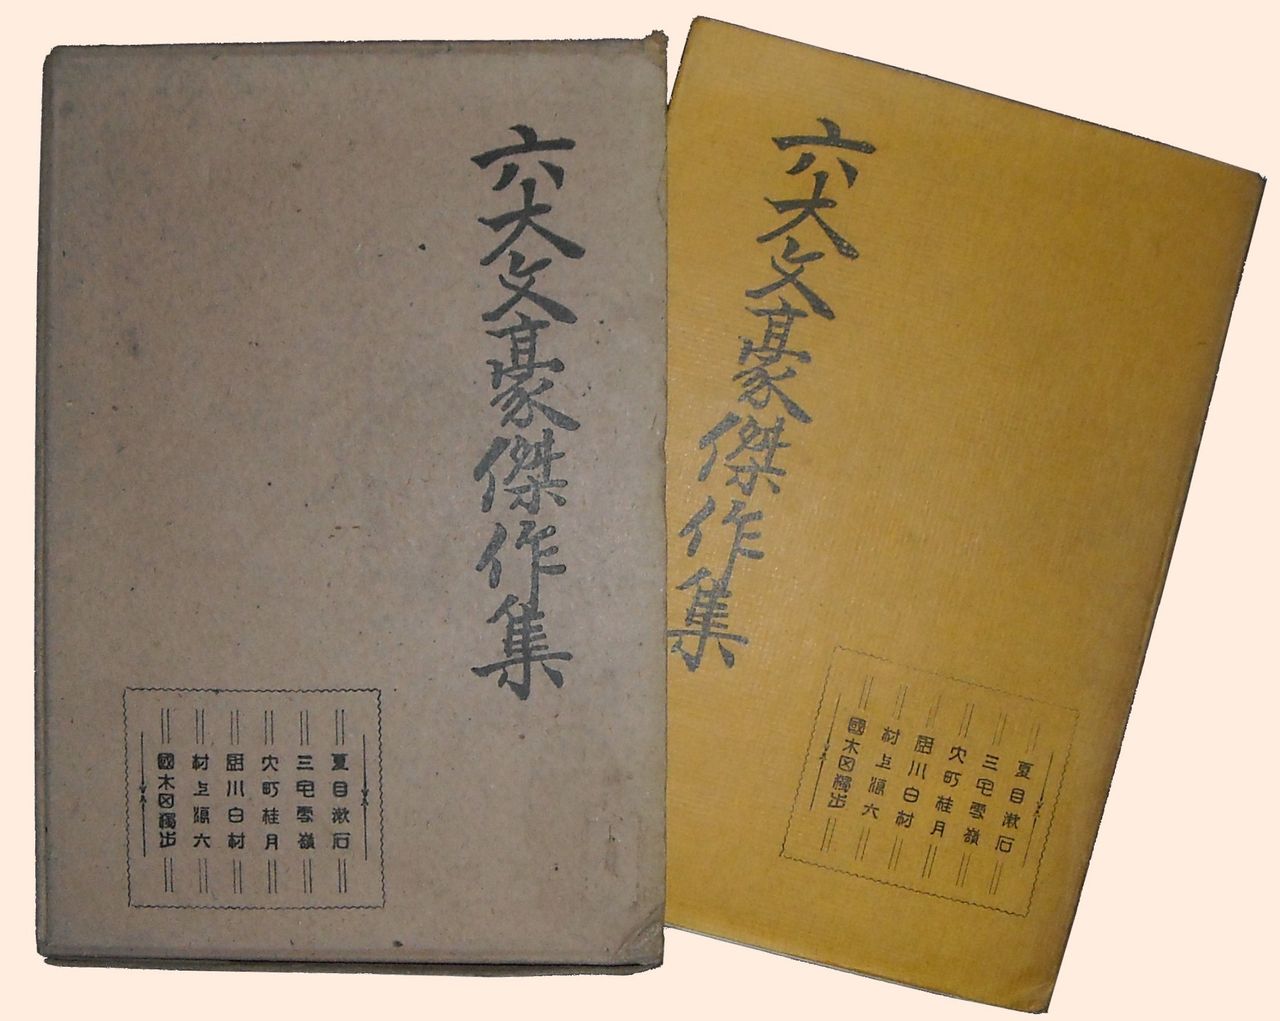 六大文豪傑作集
夏目漱石
三宅雪嶺
大町桂月
厨川白村
村上浪六
國木田獨步
六大文豪傑作集
夏目漱石
三宅雪嶺
大町桂月
厨川白村
村上浪六
國木田獨步